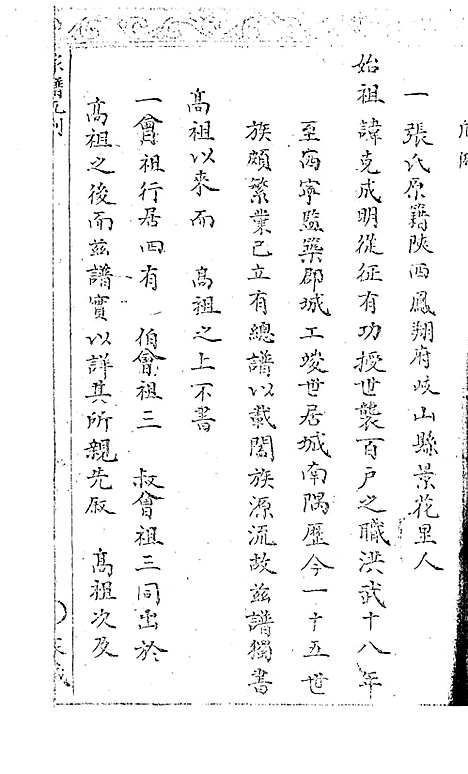 一張氏原籍陝西鳳翔府岐山縣景花里人
始祖諱克成明從征有功授世襲百戶之職洪武十八年
至西寧監築郡城工竣世居城南隅歷今一十五世
族頗繁業已立有總譜以載闔族源流故茲譜獨書
髙祖以來而 髙祖之上不書
一會祖行居四有 伯會祖三 叔會祖三同出於
髙祖之後而茲譜實以詳其所親先敘 髙祖次及
家譜凡例